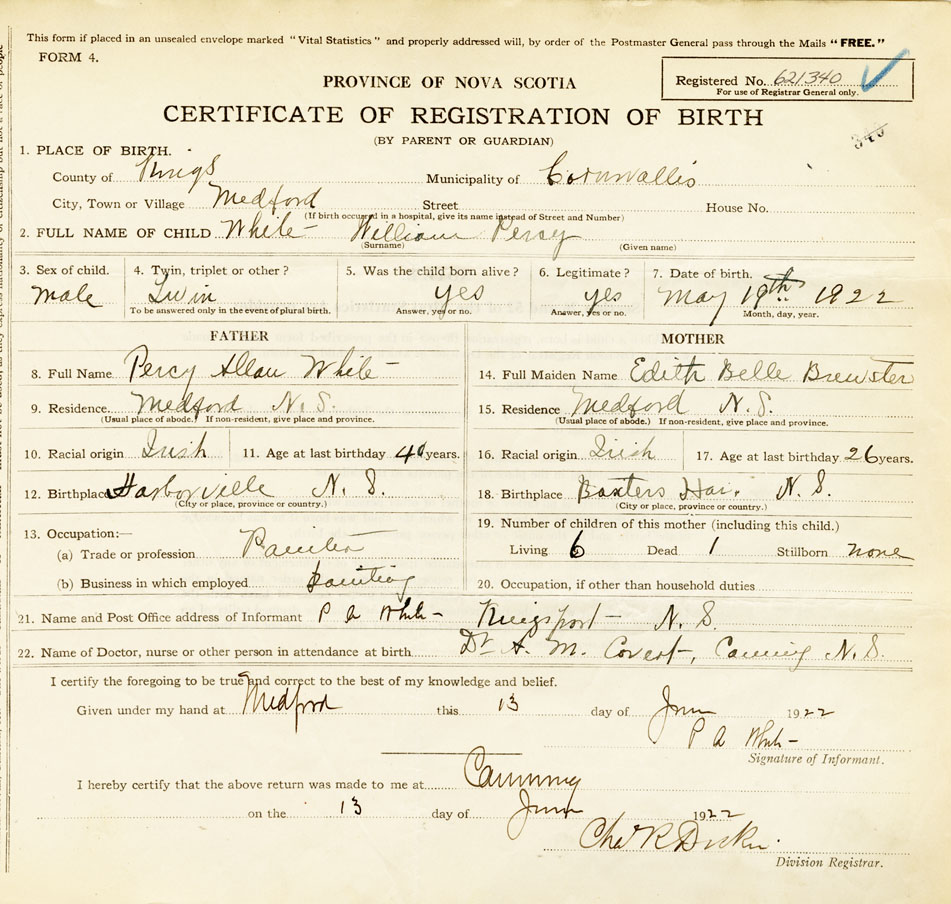 This form if placed in an unsealed envelope marked "Vital Statistics" and properly addressed will, by order of the Postmaster General pass through the Mails "FREE."
FORM 4.
PROVINCE OF NOVA SCOTIA
Registered No. 621340
For use of Registrar General only.
CERTIFICATE OF REGISTRATION OF BIRTH
(BY PARENT OR GUARDIAN)
340
1. PLACE OF BIRTH.
County of Kings Municipality of Cornwallis
City, Town or Village Medford Street House No.
(If birth occured in a hospital, give its name instead of Street and Number)
2. FULL NAME OF CHILD White William Percy
(Surname) (Given name)
3. Sex of child. 4. Twin, triplet or other? 5. Was the child born alive? 6. Legitimate? 7. Date of birth.
Male Twin yes yes May 19th 1922
To be answered only in the event of plural birth. Answer, yes or no. Answer, yes or no. Month, day, year.
FATHER MOTHER
8. Full Name Percy Allan White 14. Full Maiden Name Edith Belle Brewster
9. Residence. Medford N.S. 15. Residence Medford N.S.
(Usual place of abode.) If non-resident, give place and province. (Usual place of abode.) If non-resident, give place and province.
10. Racial origin Irish 11. Age at last birthday years. 16. Racial origin Irish 17. Age at last birthday 26 years.
12. Birthplace Harborville N.S. 18. Birthplace Baxters Har. N.S.
(City or place, province or country.) (City or place, province or country.)
13. Occupation:— 19. Number of children of this mother (including this child.)
(a) Trade or profession Painter Living 6 Dead 1 Stillborn none
(b) Business in which employed painting 20. Occupation, if other than household duties
21. Name and Post Office address of Informant P A White Kingsport N.S.
22. Name of Doctor, nurse or other person in attendance at birth Dr A. M. Covert, Canning N.S.
I certify the foregoing to be true and correct to the best of my knowledge and belief.
Given under my hand at Medford this 13 day of June 1922
P A White
Signature of Informant.
I hereby certify that the above return was made to me at Canning
on the 13 day of June 1922
Chas R
Division Registrar.